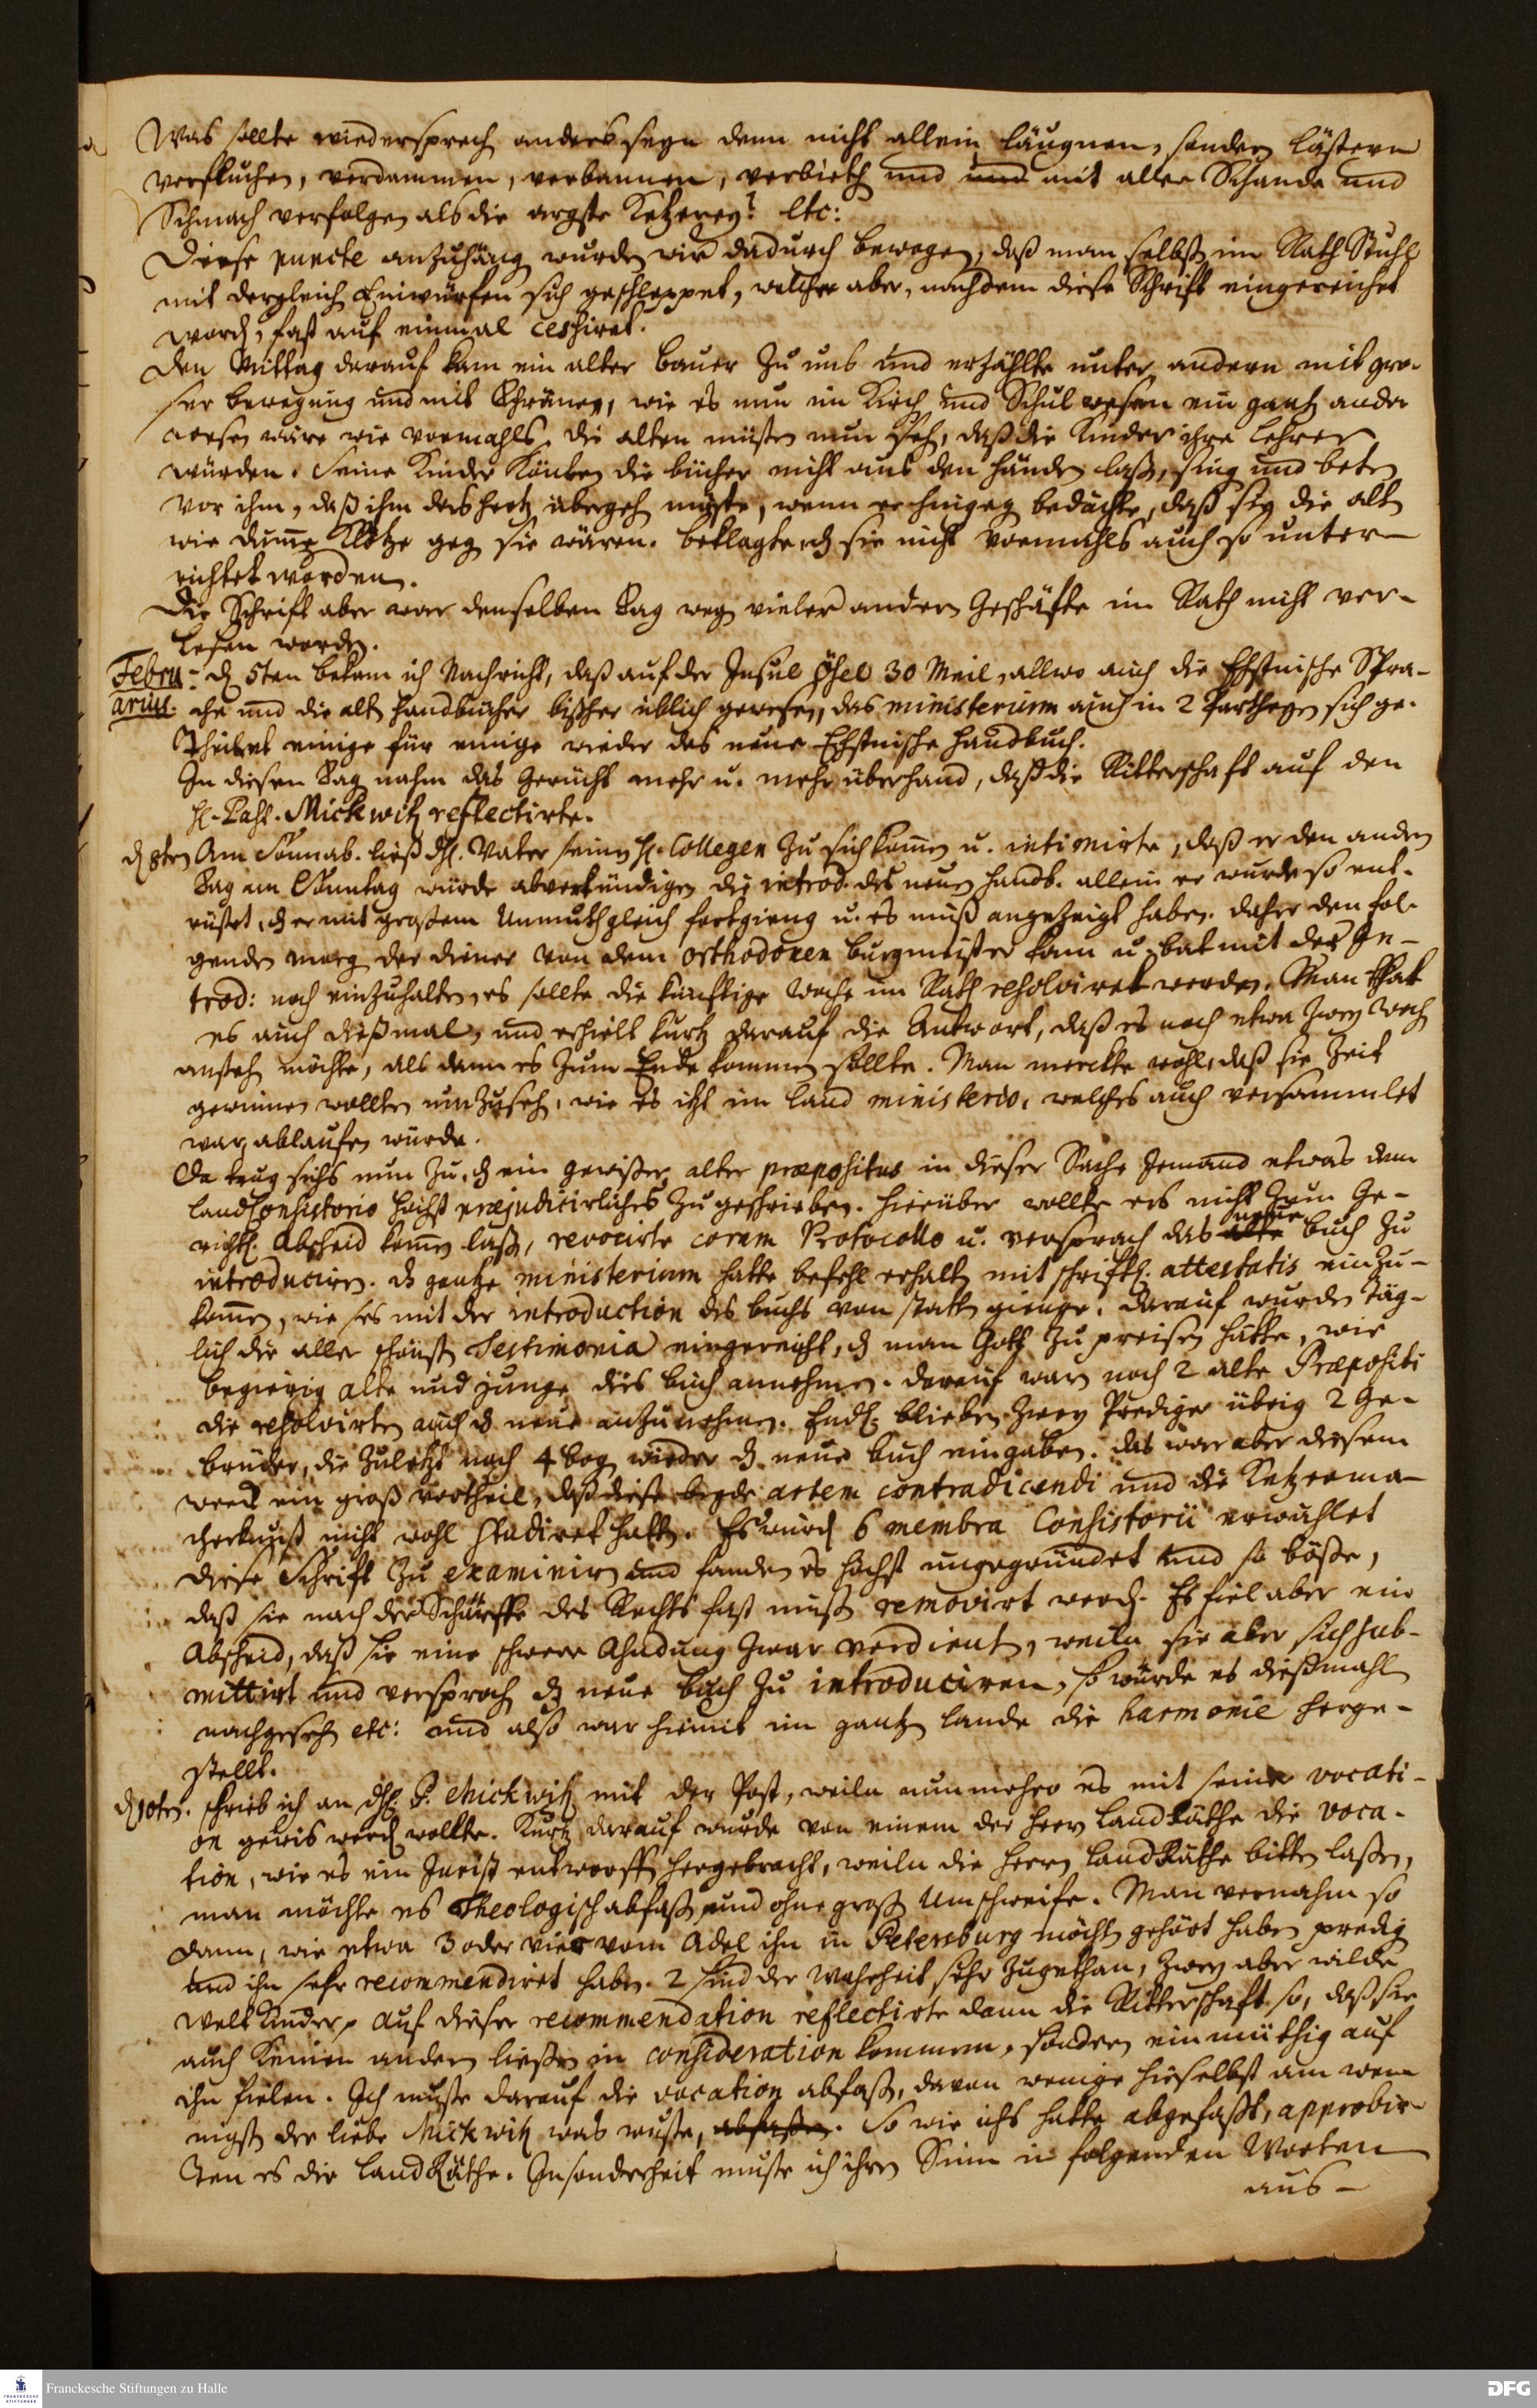 Was sollte wiedersprech anders seyn denn nicht allein läugnen, sondern lästern
verfluchen, verdammen, verbannen, verbieth und und mit aller Schande und
Schmach verfolgen als die ärgste Ketzerey? etc:
Diese puncte anzuhäng wurden wir dadurch bewogen, daß man selbst im Rath Stuhl
mit dergleich Einwürfen sich geschleppet, welche aber, nachdem diese Schrift eingereichet
word, fast auf einmal cessiret.
Den Mittag darauf kam ein alter Bauer zu uns und erzählte unter andern mit gro-
ßer bewegung und mit Thränen, wie es nun im Kirch und Schul wesen ein gantz ander
wesen wäre wie vormahls. Die alten müsten nun seh, daß die Kinder ihre Lehrer
würden. Seine Kinder könten die bücher nicht aus den händen laß, sing und beten
vor ihm, daß ihm das hertz übergeh müste, wenn er hingeg bedächte, daß sie die alt
wie dume Klötze geg sie wären. beklagte, dz sie nicht vormahls auch so unter-
richtet worden.
Die Schrift aber war denselben Tag weg vieler andern Geschäfte im Rath nicht ver-
lesen worden.
Febru- d 5ten bekam ich Nachricht, daß auf der Insul Öhsel 30 Meil, allwo auch die Ehstnische Spra-
arius. che und die alt handbücher bißher üblich gewesen, das ministerium auch in 2 Partheyen sich ge-
theilet einige für einige wieder das neue Ehstnische handbuch.
In diesen Tag nahm das Gerücht mehr u. mehr überhand, daß die Ritterschaft auf den
H. Past. Mickwitz reflectirte.
d 8ten Am Sonnab. ließ dH. Vater seine H. Collegen zu sich komen u. intimirte, daß er den andern
Tag am Sonntag würde abverkündigen die introd. des neuen handb. allein er wurde so ent-
rüstet, dz er mit großem Unmuth gleich fortgieng u. es muß angezeigt haben. Daher den fol-
genden morg der diener von dem orthodoxen burgmeister kam u. bat mit der In-
trod: noch einzuhalten, es sollte die künftige Woche im Rath resolviret werden. Man that
es auch dießmal, und erhielt kurtz darauf die Antwort, daß es noch etwa zwey Woch
ansteh möchte, als dann es zum Ende kommen sollte. Man merckte wohl, daß sie Zeit
gewinnen wollten umzuseh, wie es itzt im Land ministerio, welches auch versammlet
war, ablaufen würde.
Da trug sichs nun zu, dz ein gewißer alter præpositus in dieser Sache jemand etwas dem
Land Consistorio höchst præjudicirliches zugeschrieben. hierüber wollte ers nicht zum Ge-
richtl. Abscheid komen laß, revocirte coram Protocollo u. versprach das alte neue buch zu
introduciren. dz gantze ministerium hatte befehl erhalt mit schriftl. attestatis einzu-
komen, wie es mit der introduction des buchs von statt gienge. Darauf wurden täg-
lich die aller schönst Testimonia eingereicht, dz man Gott zu preisen hätte, wie
begierig alte und junge dies buch annehmen. Darauf war noch 2 alte Præpositi
die resolvirten auch dz neue anzunehmen. Endl. blieben zwey Prediger übrig 2 Ge-
brüder, die zuletzt noch 4 bog wieder dz neue buch eingaben. das war aber diesem
werck ein groß vortheil, daß diese beyde artem contradicendi und die Ketzerma-
cherkunst nicht wohl studiret hatt. Es wurd 6 membra Consistorii erwählet
diese Schrift zu examinirn und fanden es höchst ungegründet und so böse,
daß sie nach der Schärffe des Rechts fast müß removirt werd. Es fiel aber ein
Abscheid, daß sie eine schwere Ahndung zwar verdient, weiln sie aber sich sub-
mittirt und versproch dz neue buch zu introduciren, so würde es dießmahl
nachgeseh etc: und also war hiemit im gantz Lande die harmonie herge-
stellt.
d 10ten. schrieb ich an dH. P. Mickwitz mit der Post, weiln nunmehro es mit seiner vocati-
on gewis werd wollte. Kurtz darauf wurde von einem der Herrn LandRäthe die voca-
tion, wie es ein Jurist entworffen hergebracht, weiln die Herrn LandRäthe bitten laßen,
man möchte es Theologisch abfaß und ohne groß Umschweife. Man vernahm so
dann, wie etwa 3 oder vier vom Adel ihn in Petersburg möcht gehört haben predig
und ihn sehr recommendiret haben. 2 sind der Wahrheit sehr zugethan, zwey aber wilde
Welt Kinder. Auf dieser recommendation reflectirte dann die Ritterschaft so, daß sie
auch keinen andern ließen in consideration kommen, sondern einmüthig auf
ihn fielen. Ich muste darauf die vocation abfaß, davon wenige hieselbst am wen
nigst der liebe Mickwitz was wuste, abfaßen. So wie ichs hatte abgefaßt, approbir-
ten es die LandRäthe. Insonderheit muste ich ihren Sinn in folgenden Worten
aus-
Franckesche Stiftungen zu Halle
DFG